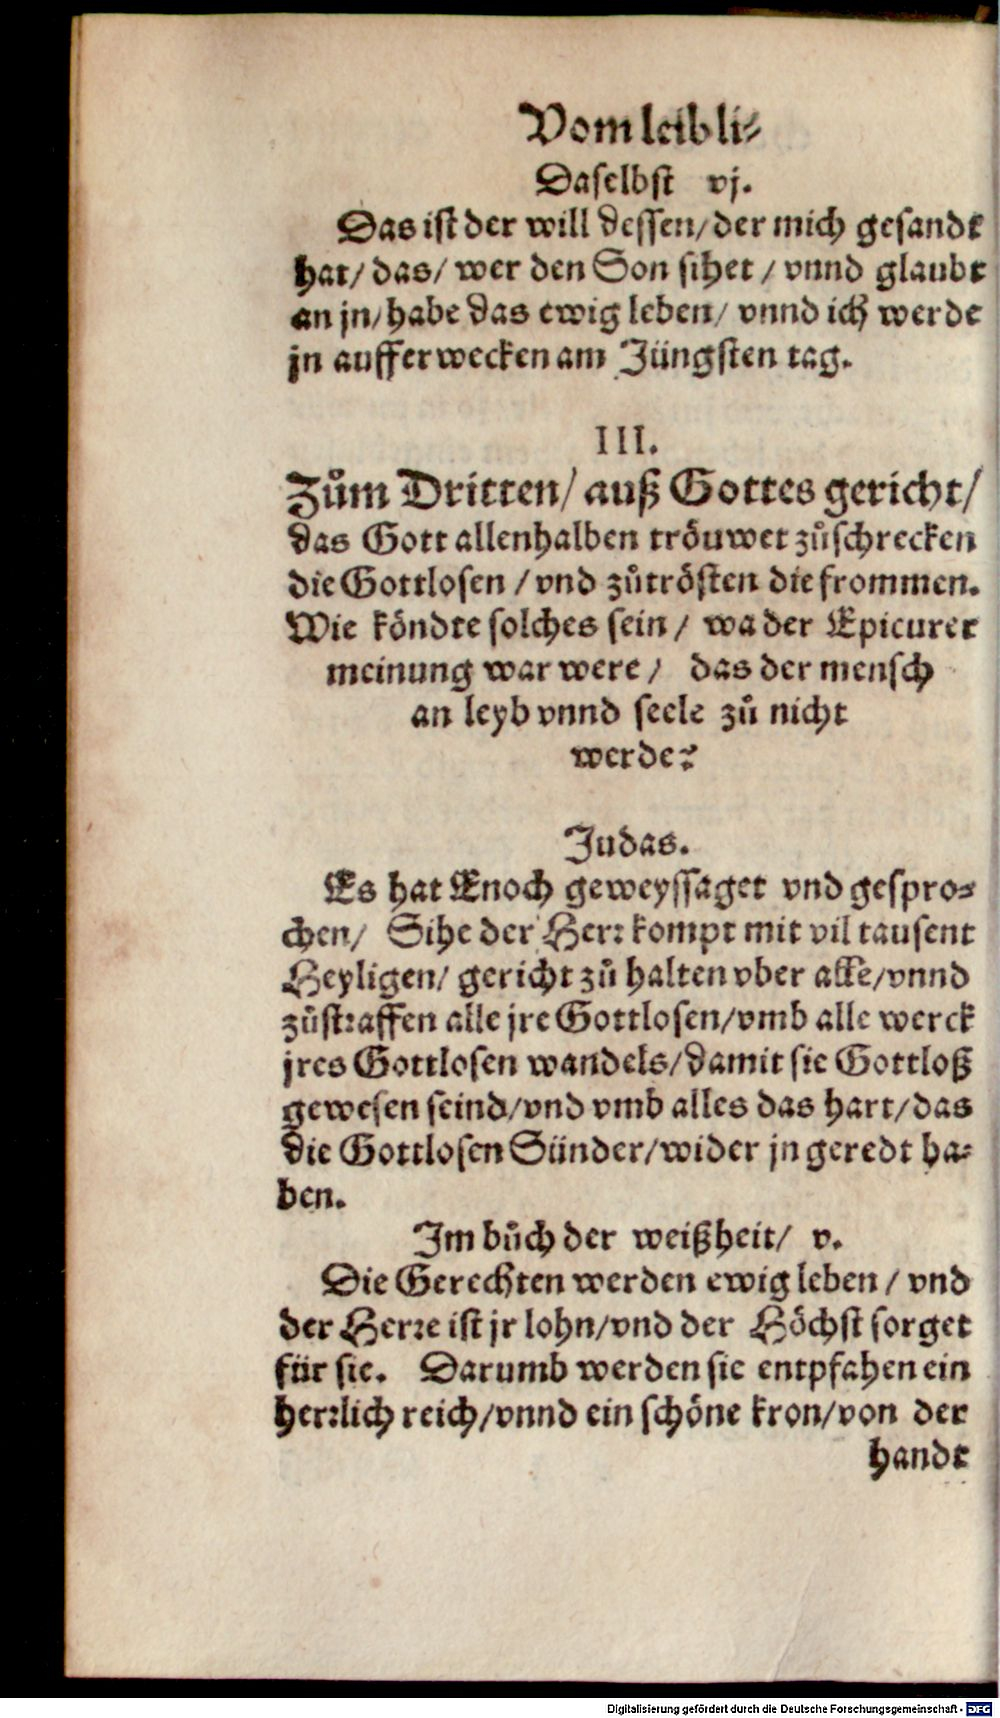 Vom leibli⸗
Daselbst vj.
Das ist der will dessen/ der mich gesandt
hat/ das/ wer den Son sihet / vnnd glaubt
an jn/ habe das ewig leben/ vnnd ich werde
jn aufferwecken am Jüngsten tag.
III.
Zům Dritten/ auß Gottes gericht/
das Gott allenhalben tröuwet zůschrecken
die Gottlosen / vnd zůtrösten die frommen.
Wie köndte solches sein / wa der Epicurer
meinung war were / das der mensch
an leyb vnnd seele zů nicht
werde?
Judas.
Es hat Enoch geweyssaget vnd gespro⸗
chen/ Sihe der Herr kompt mit vil tausent
Heyligen/ gericht zů halten vber alle/ vnnd
zůstraffen alle jre Gottlosen/ vmb alle werck
jres Gottlosen wandels/ damit sie Gottloß
gewesen seind/ vnd vmb alles das hart/ das
die Gottlosen Sünder/ wider jn geredt ha⸗
ben.
Im bůch der weißheit/ v.
Die Gerechten werden ewig leben / vnd
der Herre ist jr lohn/ vnd der Höchst sorget
für sie. Darumb werden sie entpfahen ein
herrlich reich/ vnnd ein schöne kron/ von der
handt
Digitalisierung gefördert durch die Deutsche Forschungsgemeinschaft - DFG